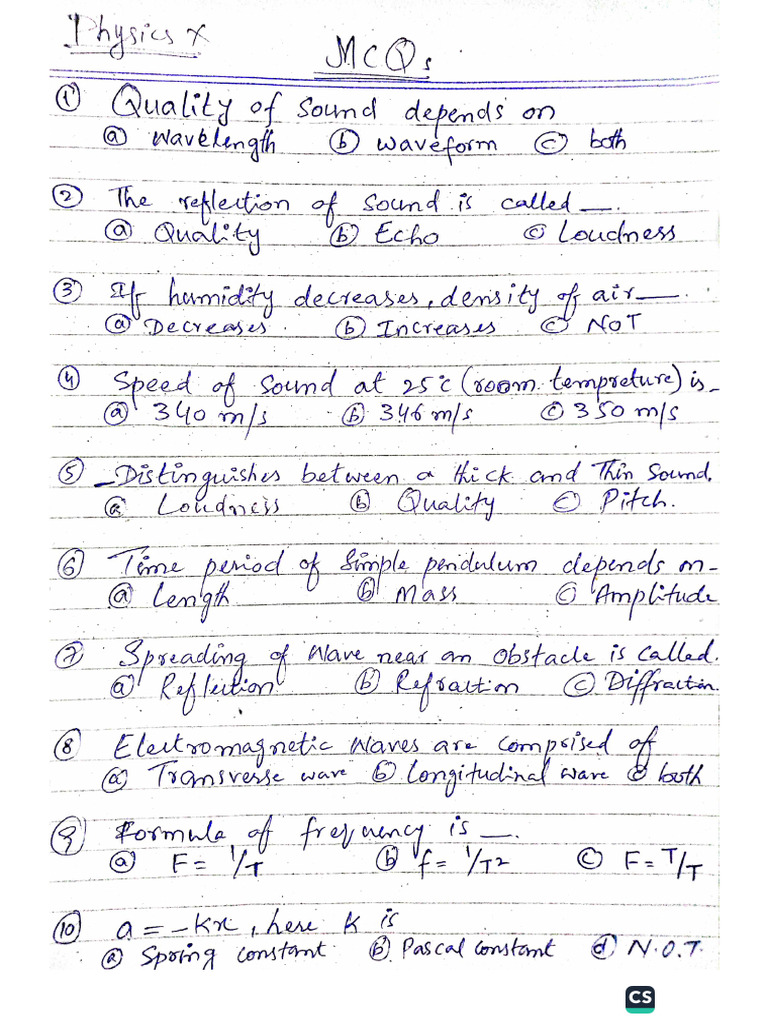 Physics X
MCQs
① Quality of Sound depends on
ⓐ wavelength ⓑ waveform ⓒ both
② The reflection of sound is called —.
ⓐ Quality ⓑ Echo ⓒ Loudness
③ If humidity decreases, density of air —.
ⓐ Decreases. ⓑ Increases ⓒ NOT
④ Speed of Sound at 25°C (room tempreture) is –
ⓐ 340 m/s ⓑ 346 m/s ⓒ 350 m/s
⑤ – Distinguishes between a thick and Thin Sound.
ⓐ Loudness ⓑ Quality ⓒ Pitch.
⑥ Time period of Simple pendulum depends on –
ⓐ Length ⓑ Mass ⓒ Amplitude
⑦ Spreading of Wave near an obstacle is called.
ⓐ Reflection ⓑ Refraction ⓒ Diffraction.
⑧ Electromagnetic Waves are comprised of
ⓐ Transverse wave ⓑ Longitudinal wave ⓒ both
⑨ Formula of frequency is —.
ⓐ F = 1/T ⓑ f = 1/T2 ⓒ F = T/T
⑩ a = -Kx, here K is
ⓐ Spring constant ⓑ Pascal constant ⓓ N.O.T.
CS